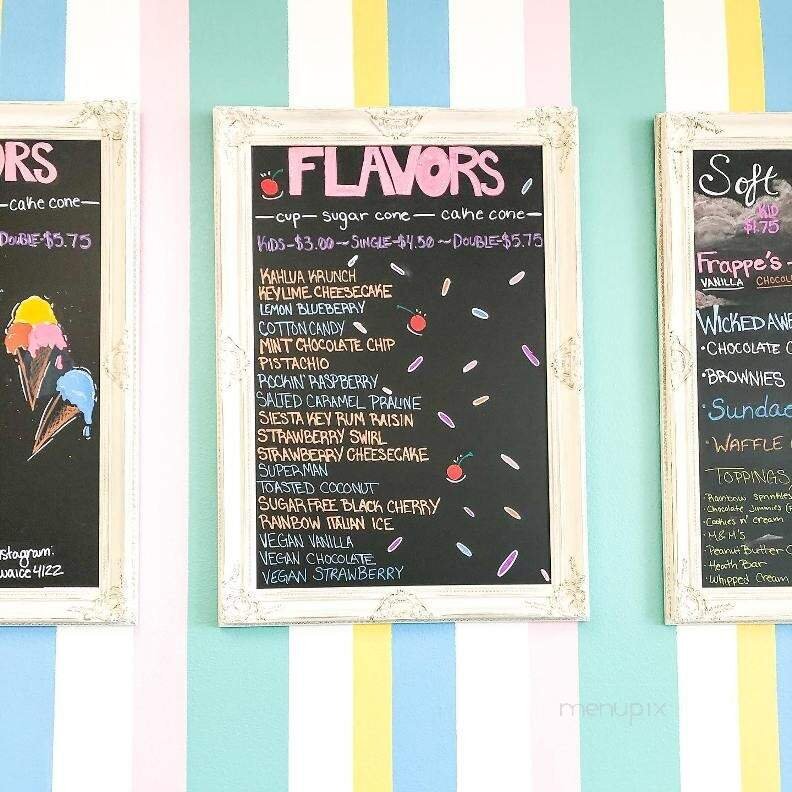 ORS
cake cone—
DOUBLE-$5.75
nstagram:
waice4122
FLAVORS
—cup— sugar cone — cake cone—
KIDS-$3.00 ~ SINGLE-$4.50 ~ DOUBLE-$5.75
KAHLUA KRUNCH
KEYLIME CHEESECAKE
LEMON BLUEBERRY
COTTON CANDY
MINT CHOCOLATE CHIP
PISTACHIO
ROCKIN' RASPBERRY
SALTED CARAMEL PRALINE
SIESTA KEY RUM RAISIN
STRAWBERRY SWIRL
STRAWBERRY CHEESECAKE
SUPERMAN
TOASTED COCONUT
SUGAR FREE BLACK CHERRY
RAINBOW ITALIAN ICE
VEGAN VANILLA
VEGAN CHOCOLATE
VEGAN STRAWBERRY
Soft
KID
$1.75
Frappe's -
VANILLA CHOCOL
WICKED AWE
•CHOCOLATE C
•BROWNIES
•Sundae
•WAFFLE
TOPPINGS
•Rainbow sprinkles
•Chocolate Jimmies (
•Cookies n' cream
•M&M'S
•Peanut Butter C
•Heath Bar
•Whipped Cream
menupix